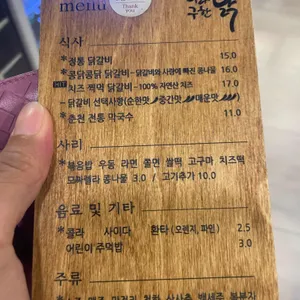 menu
Thank you
식사
*정통 닭갈비 15.0
*콩닭콩닭 닭갈비 - 닭갈비와 사랑에 빠진 콩나물 16.0
치즈 찍먹 닭갈비 - 100% 자연산 치즈 17.0
- 닭갈비 선택사항(순한맛 중간맛 매운맛)
*춘천 전통 막국수 11.0
사리
*볶음밥 우동 라면 쫄면 쌀떡 고구마 치즈떡
모짜렐라 콩나물 3.0 / 고기추가 10.0
음료 및 기타
*콜라 사이다 환타 (오렌지, 파인) 2.5
어린이 주먹밥 3.0
주류